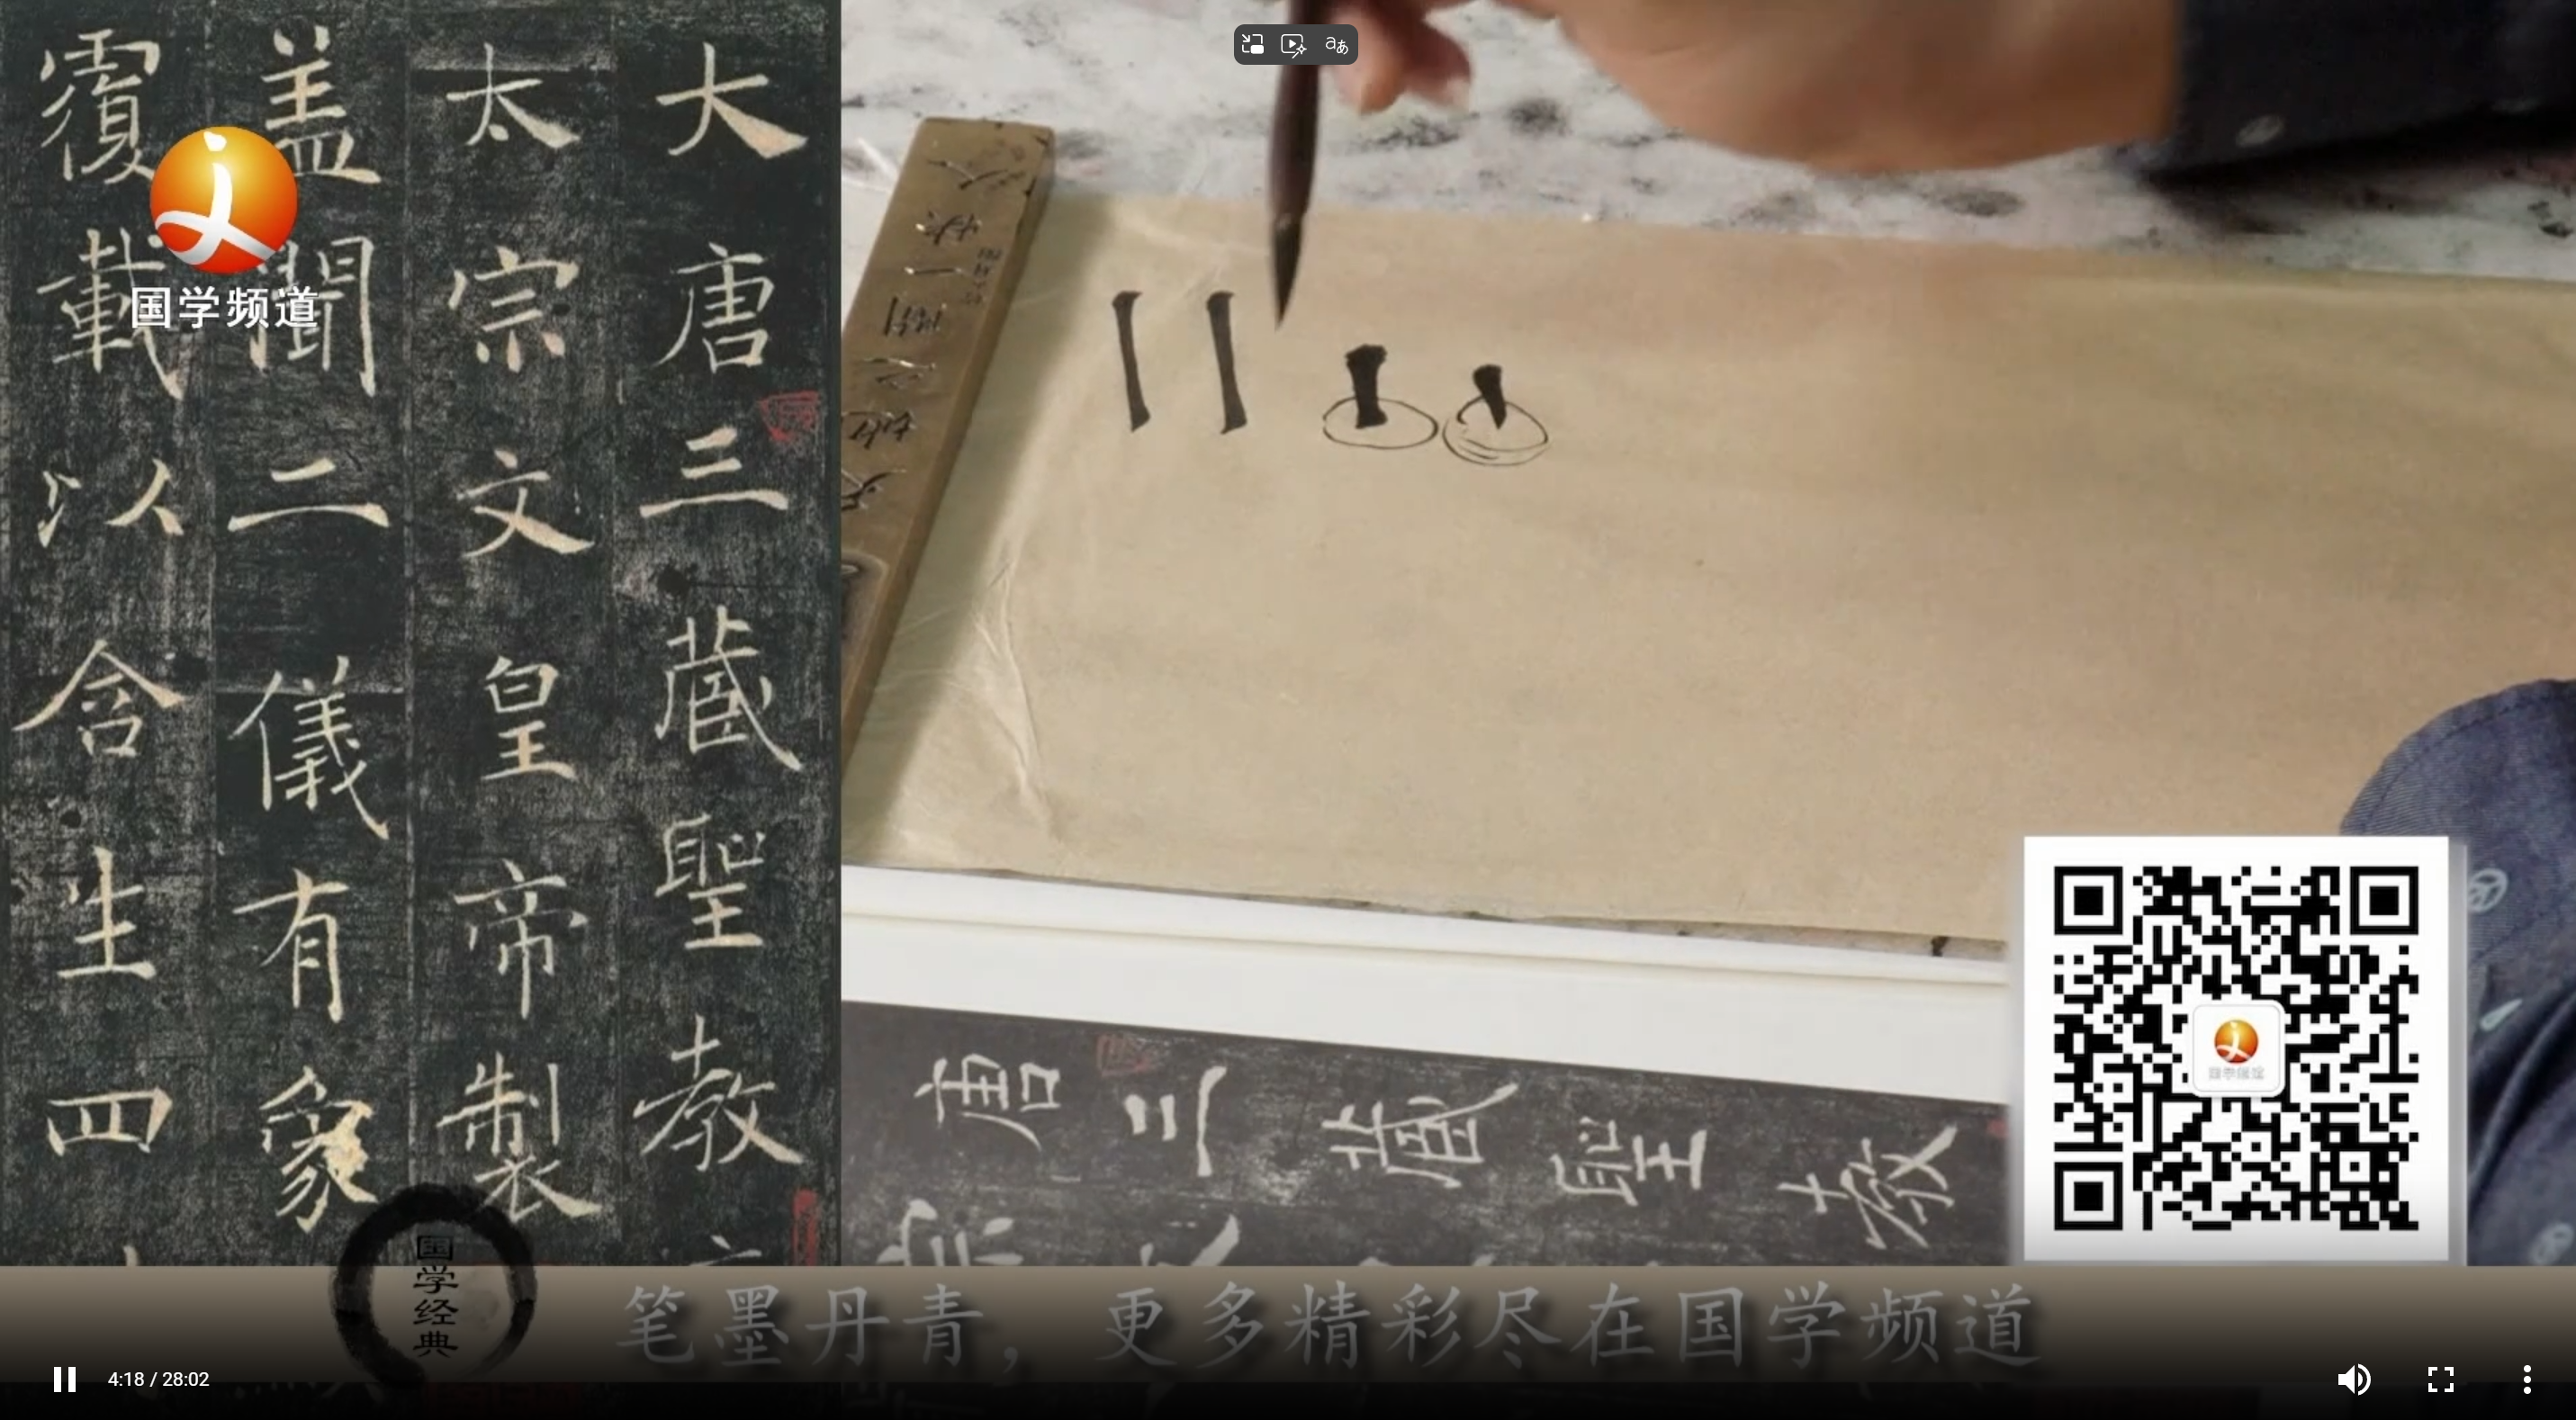 大唐三藏聖教
太宗文皇帝製
盖聞二儀有象
覆載以含生四
国学频道
唐三藏聖教
国学经典
笔墨丹青，更多精彩尽在国学频道
4:18 / 28:02